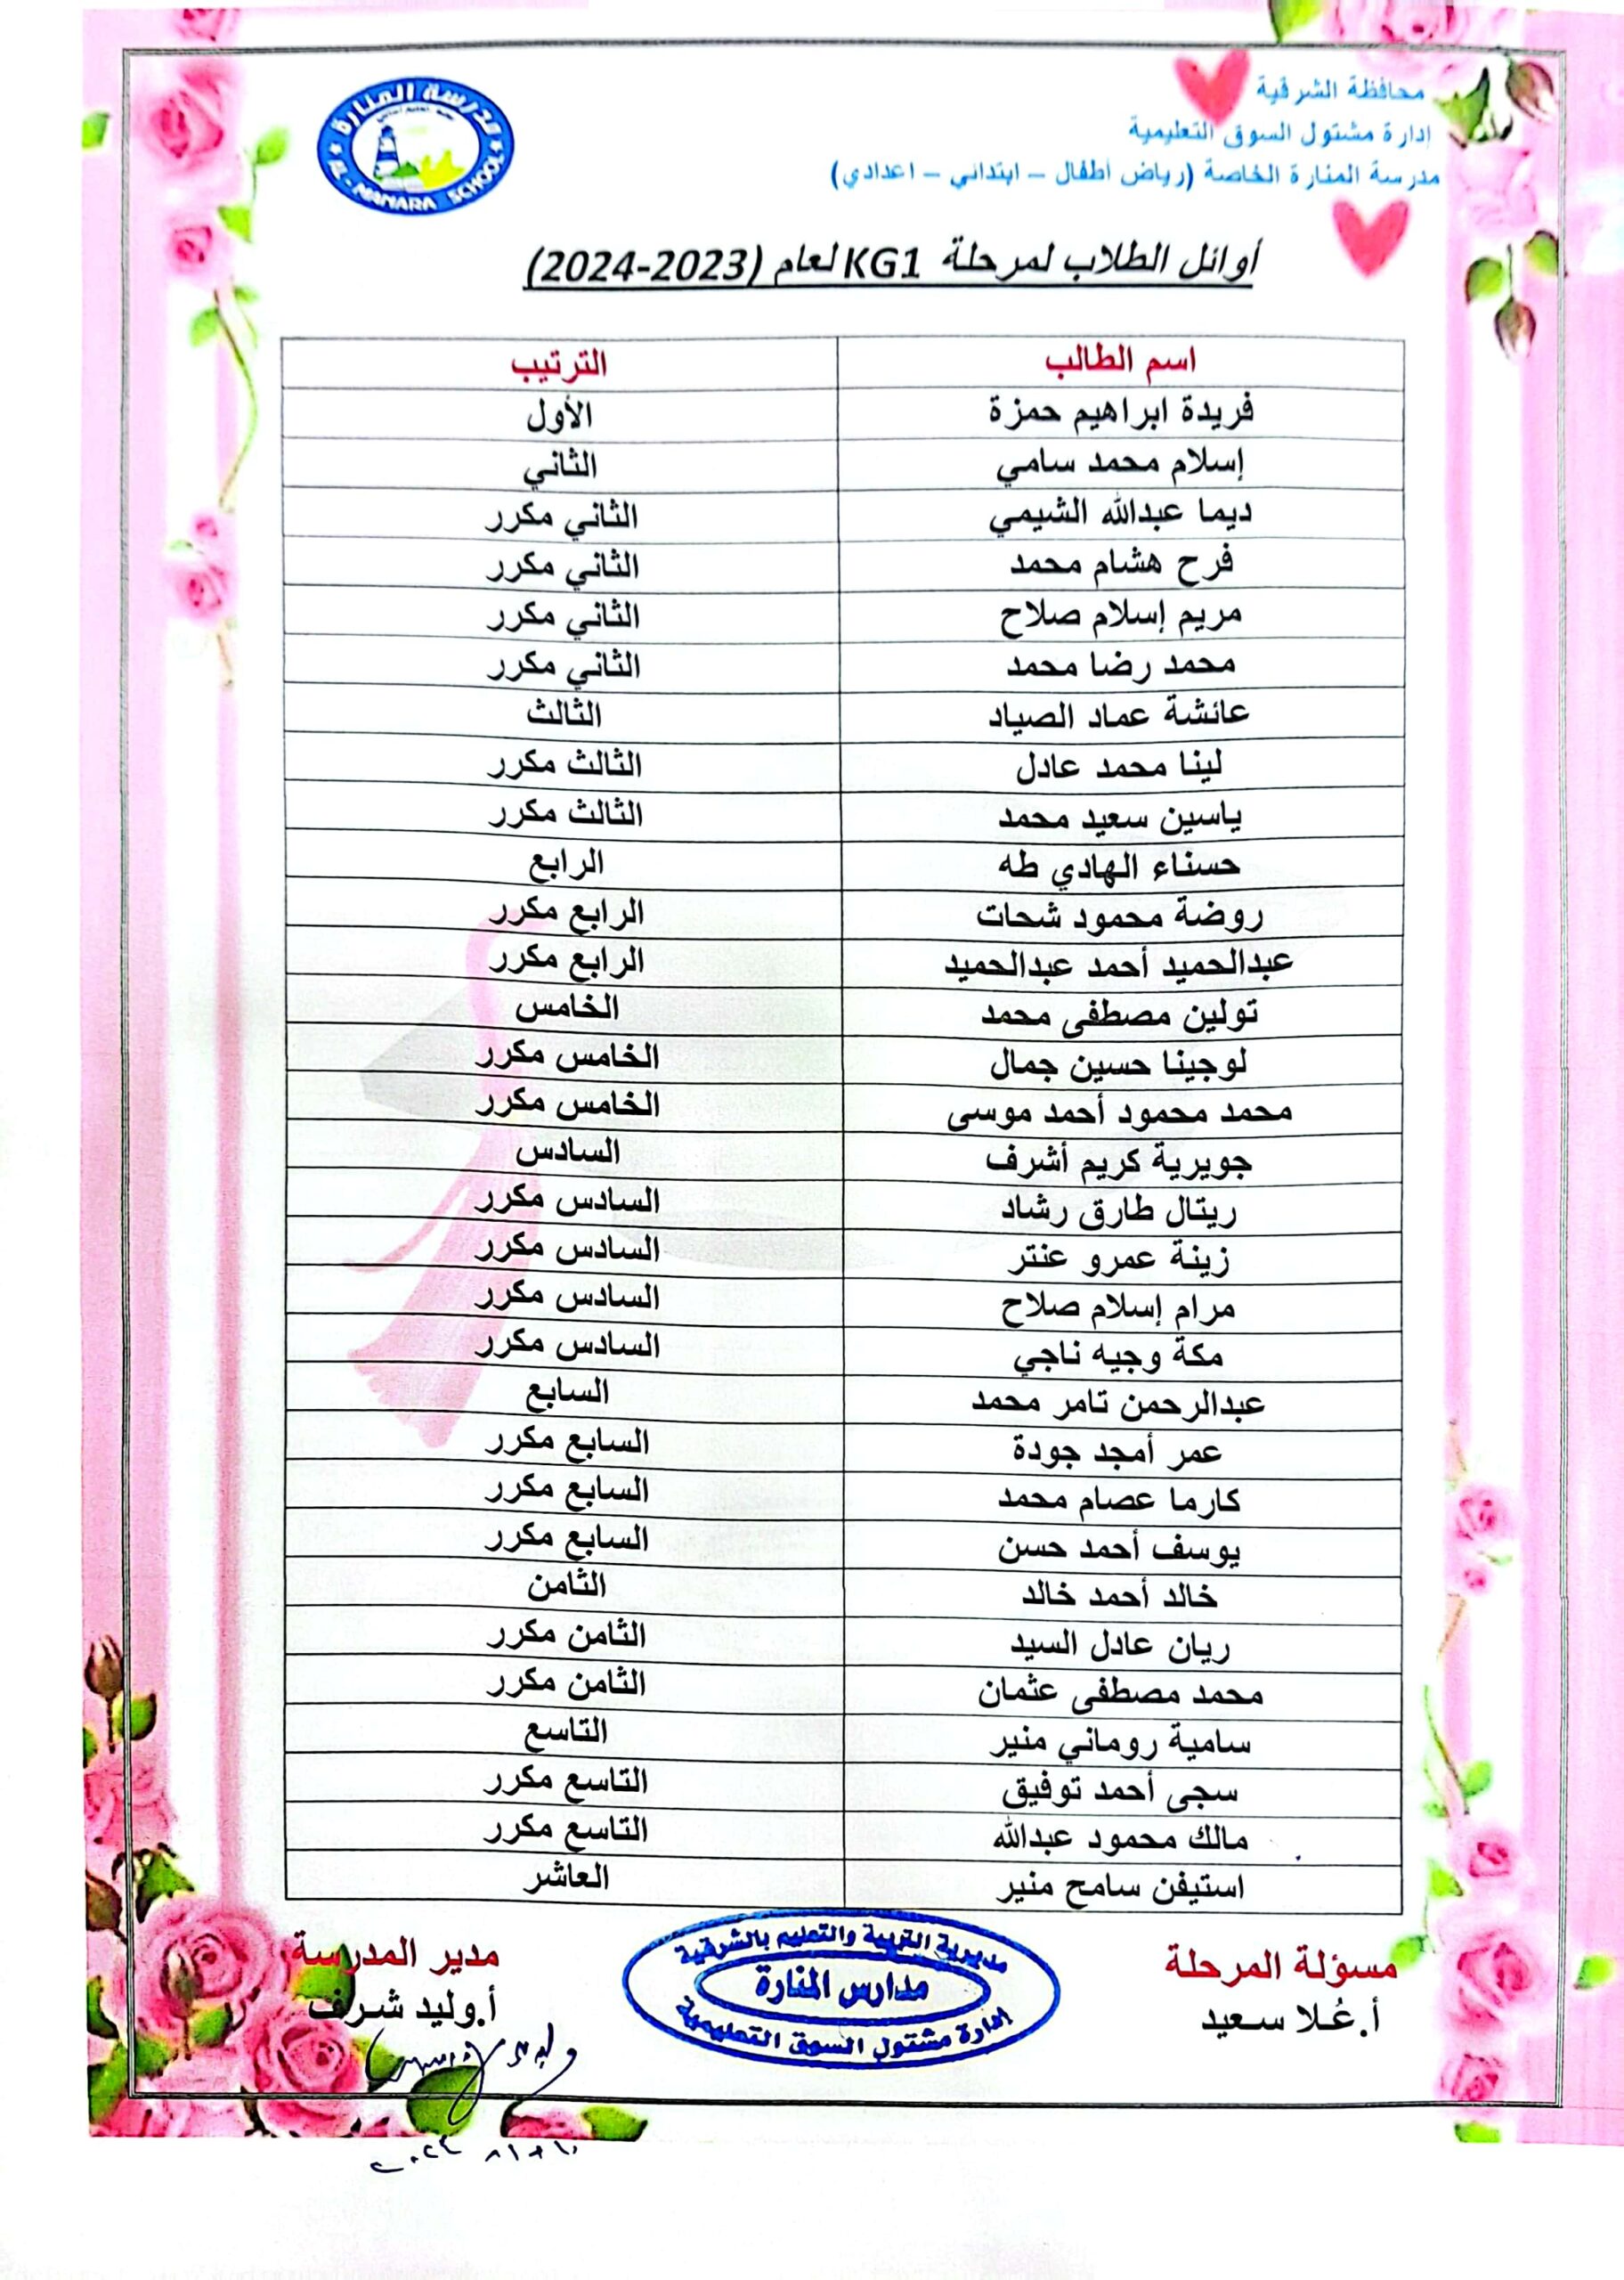 محافظة الشرقية
إدارة مشتول السوق التعليمية
مدرسة المنارة الخاصة (رياض أطفال – ابتدائي – اعدادي)
مدرسة المنارة
AL - MANARA SCHOOL
أوائل الطلاب لمرحلة KG1 لعام (2023-2024)
اسم الطالب الترتيب
فريدة ابراهيم حمزة الأول
إسلام محمد سامي الثاني
ديما عبدالله الشيمي الثاني مكرر
فرح هشام محمد الثاني مكرر
مريم إسلام صلاح الثاني مكرر
محمد رضا محمد الثاني مكرر
عائشة عماد الصياد الثالث
لينا محمد عادل الثالث مكرر
ياسين سعيد محمد الثالث مكرر
حسناء الهادي طه الرابع
روضة محمود شحات الرابع مكرر
عبدالحميد أحمد عبدالحميد الرابع مكرر
تولين مصطفى محمد الخامس
لوجينا حسين جمال الخامس مكرر
محمد محمود أحمد موسى الخامس مكرر
جويرية كريم أشرف السادس
ريتال طارق رشاد السادس مكرر
زينة عمرو عنتر السادس مكرر
مرام إسلام صلاح السادس مكرر
مكة وجيه ناجي السادس مكرر
عبدالرحمن تامر محمد السابع
عمر أمجد جودة السابع مكرر
كارما عصام محمد السابع مكرر
يوسف أحمد حسن السابع مكرر
خالد أحمد خالد الثامن
ريان عادل السيد الثامن مكرر
محمد مصطفى عثمان الثامن مكرر
سامية روماني منير التاسع
سجى أحمد توفيق التاسع مكرر
مالك محمود عبدالله التاسع مكرر
استيفن سامح منير العاشر
مسؤلة المرحلة
أ.عُلا سعيد
مديرية التربية والتعليم بالشرقية
مدارس المنارة
إدارة مشتول السوق التعليمية
مدير المدرسة
أ.وليد شرف